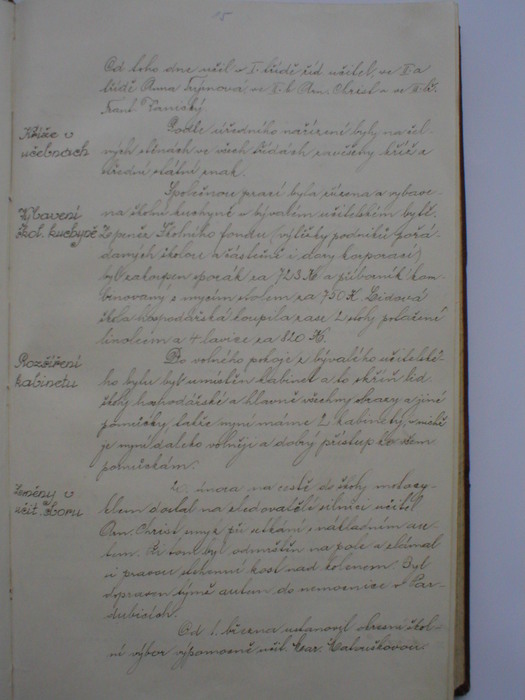 15
Od toho dne učil v I. třídě říd. učitel, ve II. a
třídě Anna Trpinová, ve II. b Ant. Christ a ve III. tř.
Frant.
Kříže v učebnách
Podle úředního nařízení byly na čel-
ných stěnách ve všech třídách zavěšeny kříž a
střední státní znak.
Vybavení škol. kuchyně
Společnou prací byla zřízena a vybave-
na školní kuchyně v bývalém učitelském bytě.
Z peněz školního fondu (výtěžky podniků pořá-
daných školou a částečně i dary korporací)
byl zakoupen sporák za 723 K a příborník kom-
binovaný s mycím stolem za 750 K. Lidová
škola hospodářská koupila zase 2 stoly potažené
linoleem a 4 lavice za 820 K.
Rozšíření kabinetu
Do volného pokoje z bývalého učitelské-
ho bytu byl umístěn kabinet a to skříň lid.
školy hospodářské a hlavně všechny obrazy a jiné
pomůcky, takže nyní máme 2 kabinety, v nichž
je nyní daleko volněji a dobrý přístup ke všem
pomůckám.
Změny v učit. sboru
února na cestě do školy motocy-
klem dostal na sledovatělé silnici učitel
Ant. Christ smyk při utkání s nákladním au-
tem. Při tom byl odmrštěn na pole a zlámal
si pravou stehenní kost nad kolenem. Byl
dopraven týmž autem do nemocnice v Par-
dubicích.
Od 1. března ustanovil okresní škol-
ní výbor výpomocně učit. Mar.